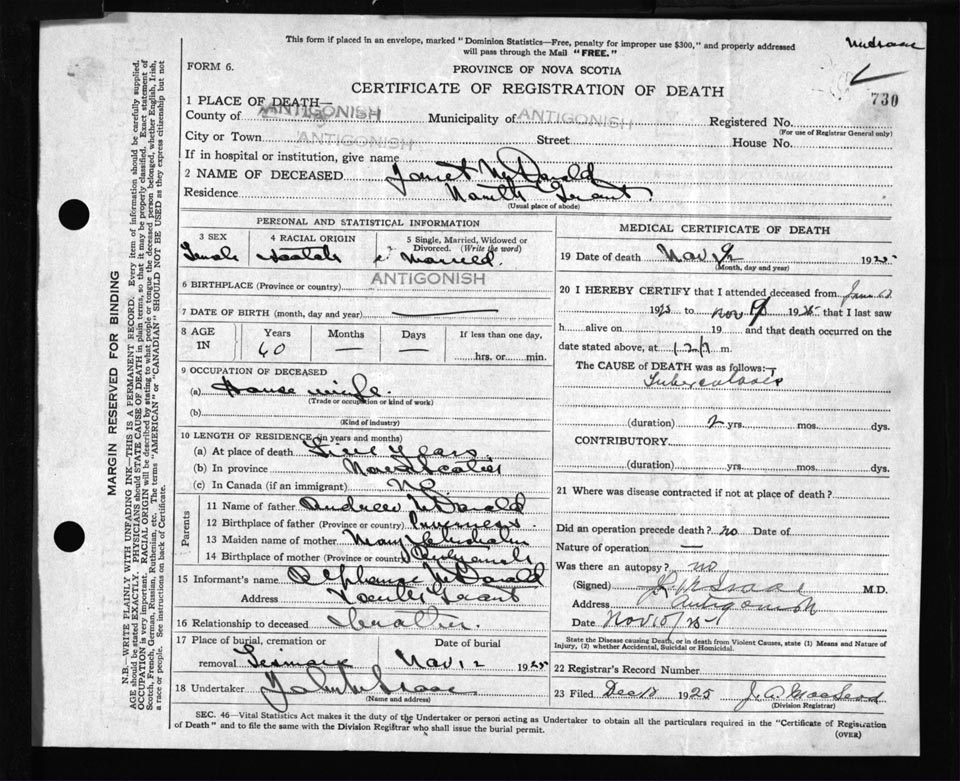 This form if placed in an envelope, marked "Dominion Statistics—Free, penalty for improper use $300," and properly addressed
will pass through the Mail "FREE."
FORM 6.
PROVINCE OF NOVA SCOTIA
CERTIFICATE OF REGISTRATION OF DEATH
730
1 PLACE OF DEATH—
County of ANTIGONISH Municipality of ANTIGONISH Registered No.
(For use of Registrar General only)
City or Town ANTIGONISH Street House No.
If in hospital or institution, give name
2 NAME OF DECEASED Janet McDonald
Residence North Grant
(Usual place of abode)
PERSONAL AND STATISTICAL INFORMATION
3 SEX 4 RACIAL ORIGIN 5 Single, Married, Widowed or Divorced. (Write the word)
Female Scotch Married.
6 BIRTHPLACE (Province or country) ANTIGONISH
7 DATE OF BIRTH (month, day and year) —
8 AGE IN Years Months Days If less than one day,
60 — — hrs. or min.
9 OCCUPATION OF DECEASED
(a) House wife
(Trade or occupation or kind of work)
(b)
(Kind of industry)
10 LENGTH OF RESIDENCE (in years and months)
(a) At place of death Years
(b) In province Nova Scotia
(c) In Canada (if an immigrant)
Parents
11 Name of father Andrew McDonald
12 Birthplace of father (Province or country) Inverness.
13 Maiden name of mother Mary Chisholm
14 Birthplace of mother (Province or country)
15 Informant's name Alphonse McDonald
Address North Grant
16 Relationship to deceased brother.
17 Place of burial, cremation or Date of burial
removal Nov 12 1925
18 Undertaker John
(Name and address)
MEDICAL CERTIFICATE OF DEATH
19 Date of death Nov 1925
(Month, day and year)
20 I HEREBY CERTIFY that I attended deceased from June
1925 to Nov 9 1925 that I last saw
h alive on 19 and that death occurred on the
date stated above, at m.
The CAUSE OF DEATH was as follows:
Tuberculosis
(duration) 2 yrs. mos. dys.
CONTRIBUTORY
(duration) yrs. mos. dys.
21 Where was disease contracted if not at place of death?
Did an operation precede death? no Date of
Nature of operation —
Was there an autopsy? no
(Signed) M.D.
Address Antigonish
Date Nov 10/25
State the Disease causing Death, or in death from Violent Causes, state (1) Means and Nature of
Injury, (2) whether Accidental, Suicidal or Homicidal.
22 Registrar's Record Number
23 Filed Dec 1925 J. A. MacLeod
(Division Registrar)
SEC. 46—Vital Statistics Act makes it the duty of the Undertaker or person acting as Undertaker to obtain all the particulars required in the "Certificate of Registration
of Death" and to file the same with the Division Registrar who shall issue the burial permit.
(OVER)
MARGIN RESERVED FOR BINDING
N.B.—WRITE PLAINLY WITH UNFADING INK—THIS IS A PERMANENT RECORD. Every item of information should be carefully supplied.
AGE should be stated EXACTLY. PHYSICIANS should STATE CAUSE OF DEATH in plain terms, so that it may be properly classified. Exact statement of
OCCUPATION is very important. RACIAL ORIGIN will be described by stating to what people or tongue the deceased person belonged, whether English, Irish,
Scotch, French, German, Russian, Ruthenian, etc. The terms "AMERICAN" or "CANADIAN" SHOULD NOT BE USED as they express citizenship but not
a race or people. See instructions on back of Certificate.